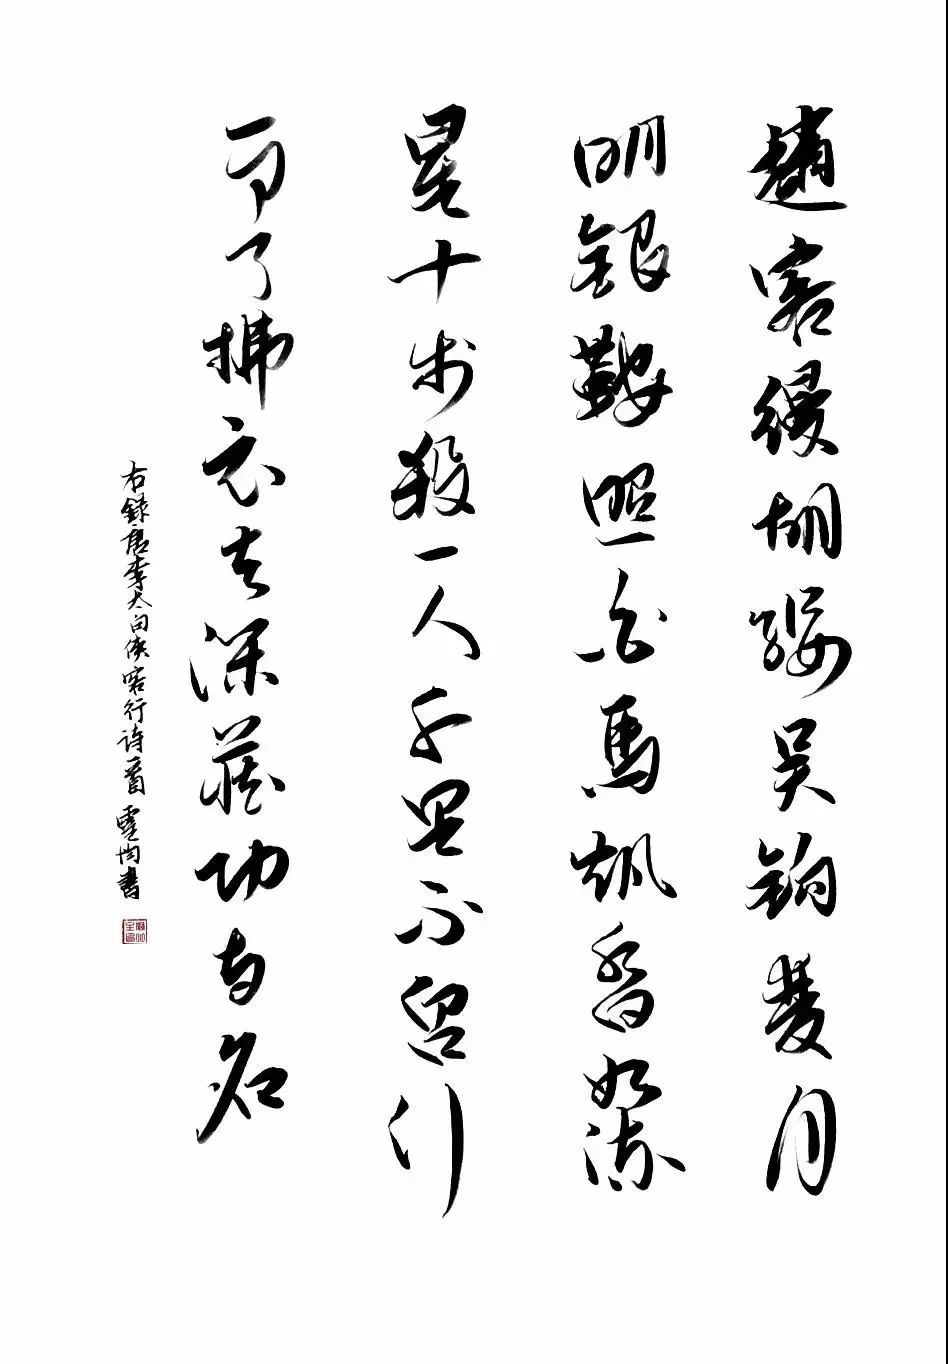 趙客縵胡纓吳鉤月
明銀鞍照白馬颯沓如流
星十步殺一人千里不留行
事了拂衣去深藏功与名
右録唐李太白俠客行诗一首 靈均書